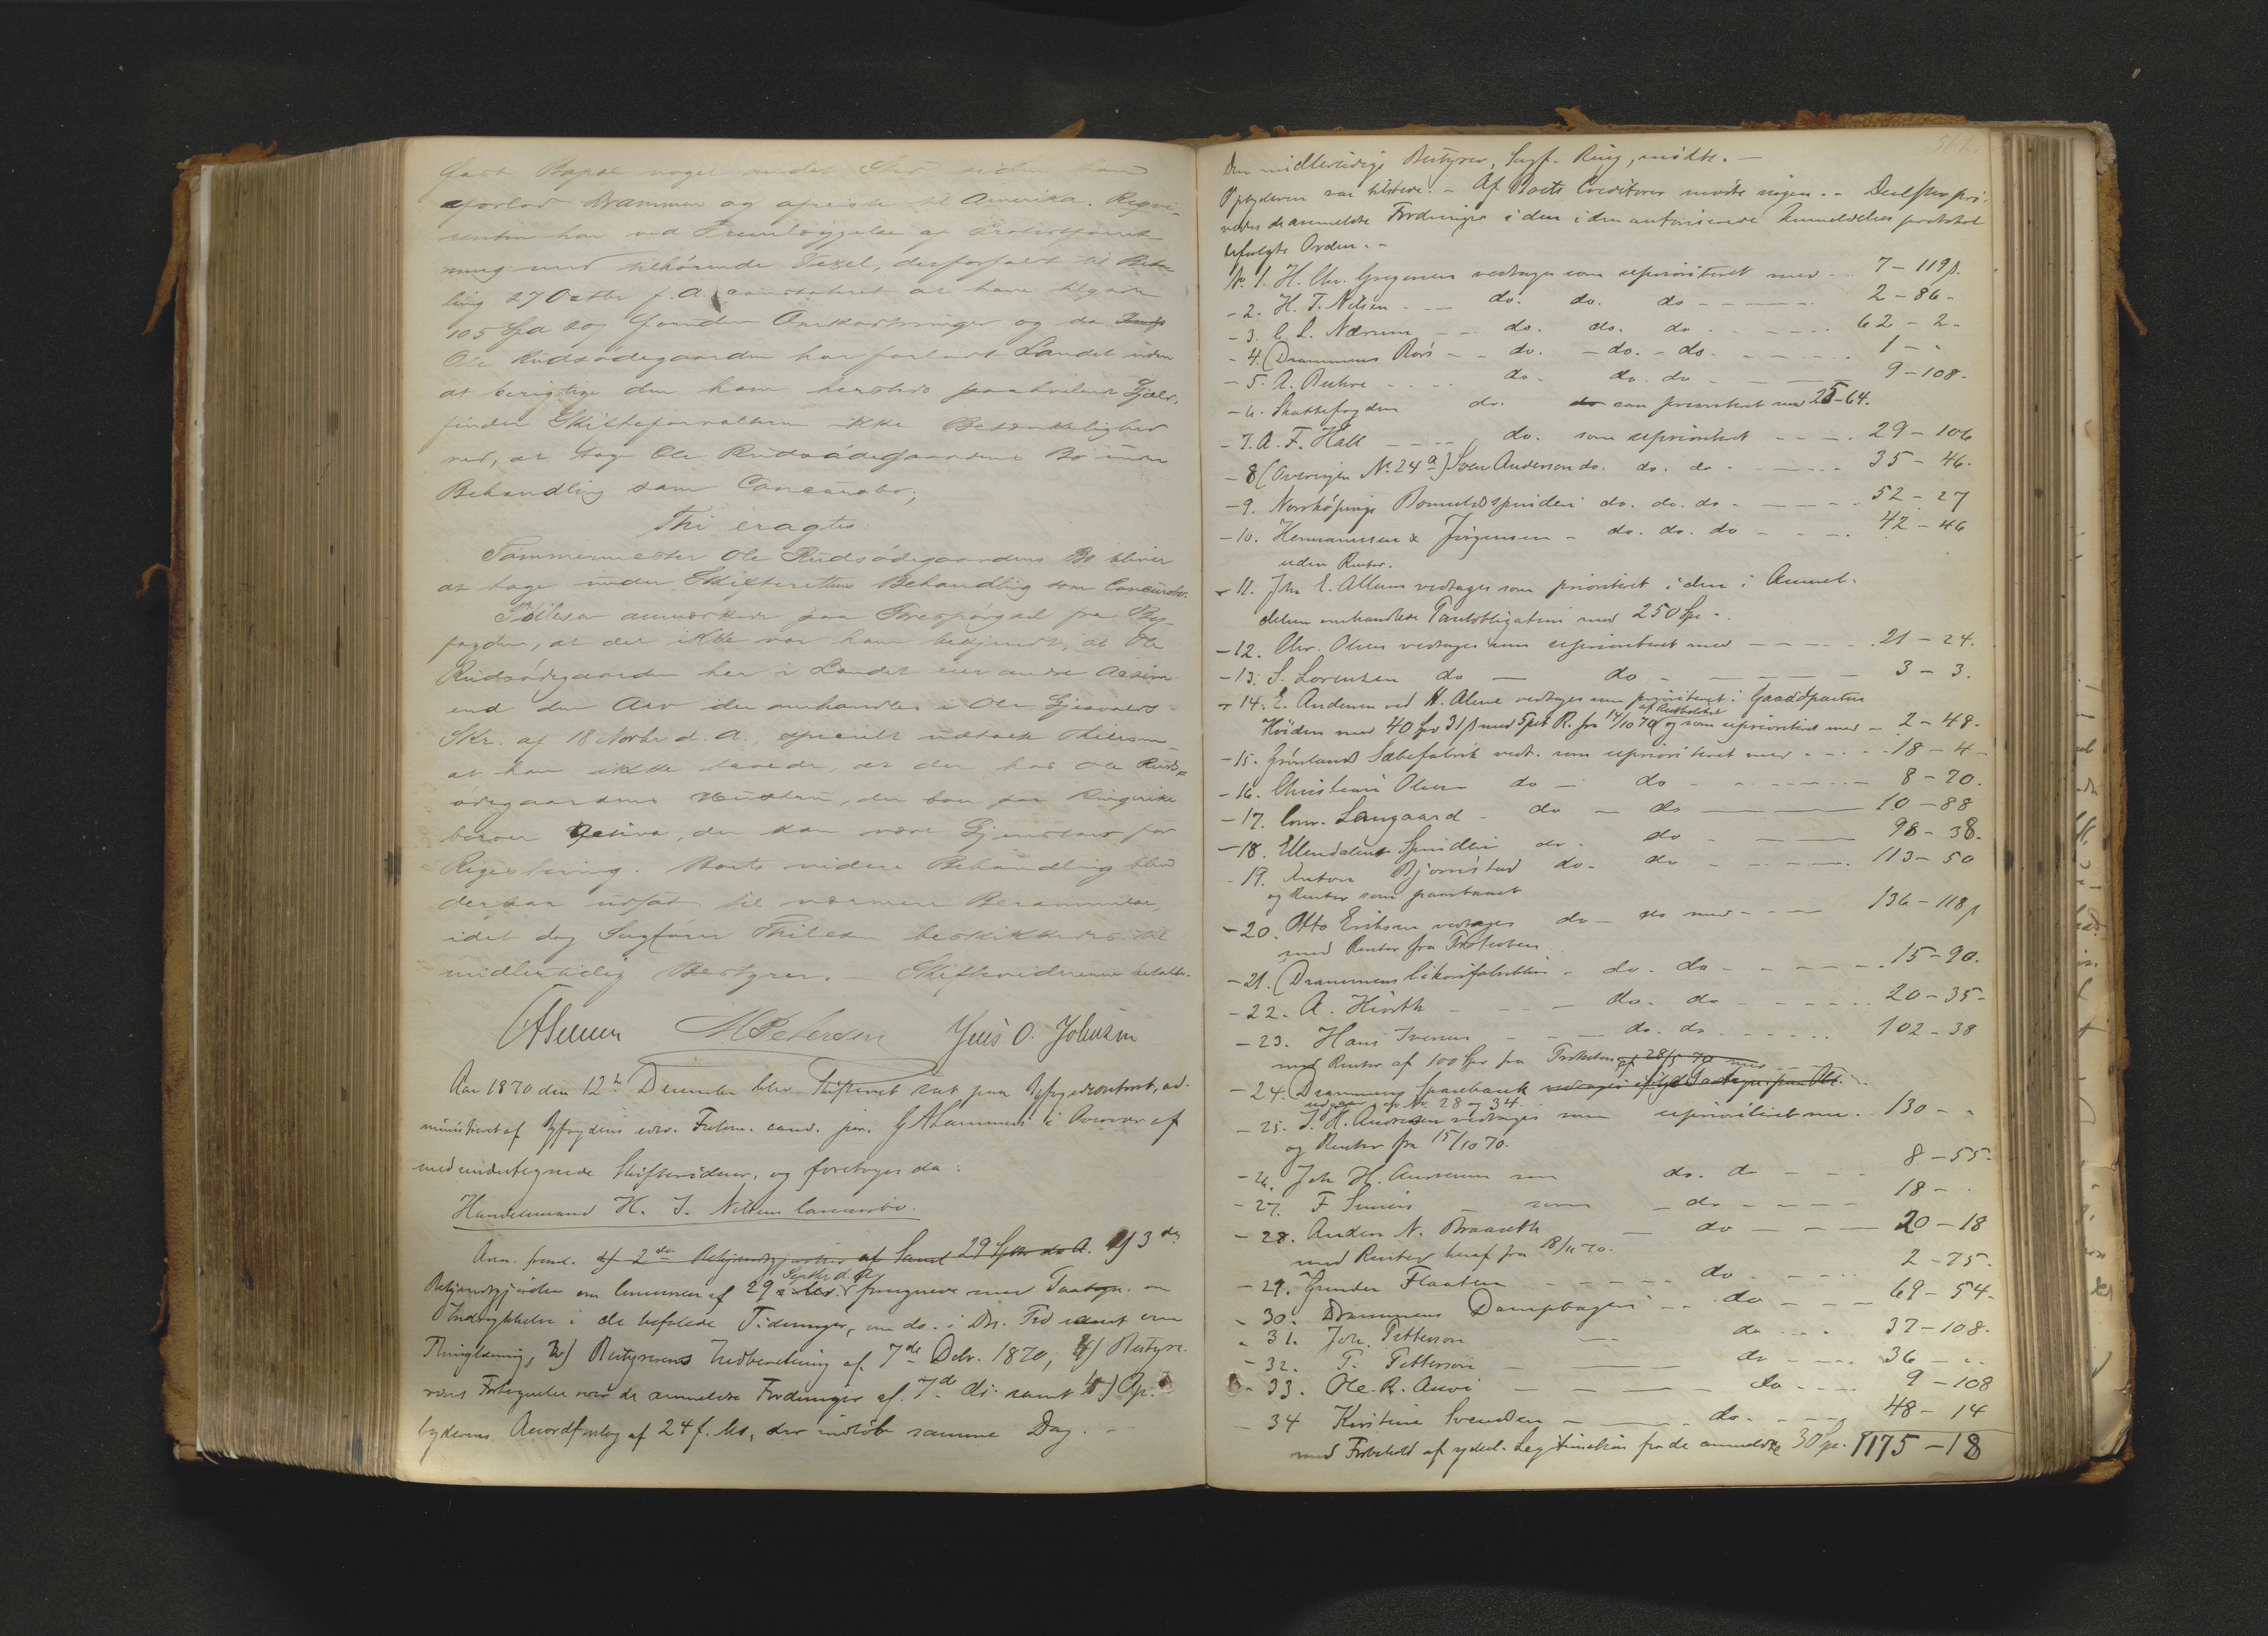 fast Bopæl noget andet Sted siden han
forlod Drammen og afreiste til Amerika. Reqvi-
renten har ved Fremlæggelse af Protestforret-
ning med tilhørende Vexel, der forfaldt til Beta-
ling 27 Octbr f. A. constateret at have tilgode
105 Spd og foruden Omkostninger og da
Ole Rudsødegaarden har forladt Landet uden
at berigtige den ham herstedes paahvilende Gjæld,
finder Skifteforvalteren ikke Betænkelighed
ved, at tage Ole Rudsødegaardens Bo under
Behandling som Concursbo,
Thi eragtes:
Tømmermester Ole Rudsødegaardens Bo bliver
at tage under Skifterettens Behandling som Concursbo.
Thilesen anmærkede paa Forespørgsel fra By-
fogden, at det ikke var ham bekjendt, at Ole
Rudsødegaarden her i Landet eier andre Activa
end den Arv der omhandles i Ole
Skr. af 18 Novbr d. A., specielt udtalte Thilesen
at han ikke troede, at der hos Ole Ruds-
ødegaardens Hustru, der bor paa Ringerike
beroer Activa, der kan være Gjenstand for
Registrering. Boets videre Behandling blev
derpaa udsat til nærmere Berammelse,
idet dog Sagfører Thilesen beskikkedes til
midlertidig Bestyrer. – Skiftevidnerne betalte.
M Petersen Jens O. Johnsen
Aar 1870 den 12te December blev Skifteret sat paa Byfogedcontoret, ad-
ministreret af Byfogdens edsv. Fuldm. cand. jur. G A Lammers i Overvær af
medundertegnede Skiftevidner, og foretoges da:
Handelsmand H. T. Nilsens Concursbo.
Ann. freml. 2den Bekjendtgjørelse af Samt 29 Septbr d. A. 1) 3de
Bekjendtgjørelser om Concursen af 29 Septbr d. A. forsynede med Paategn. om
Indrykkelse i de befalede Tidender, en do. i Dr. Tid samt om
Thinglæsning, 2) Bestyrerens Indberetning af 7de Decbr. 1870, 3) Besty-
rerens Fortegnelse over de anmeldte Fordringer af 7de ds. samt 4) Op-
byderens Accordforslag af 24 f. M., der indløb samme Dag. –
Den midlertidige Bestyrer, Sagf. Ring, mødte. –
Opbyderen var tilstede. – Af Boets Creditorer mødte ingen. –
vedes de anmeldte Fordringer i den i den autoriserede Anmeldelses protokol
befulgte Orden. –
No 1. H. Chr. Gregersen vedtages som uprioriteret med 7 – 119 ß.
- 2. H. T. Nilsen – do. do. do – 2 – 86 –
- 3. C. L. Nærum – do. do. do – 62 – 2 –
- 4. Drammens Avis – do. – do. – do. 1 – "
- 5. A. Buhre – do. do. do 9 – 108 –
- 6. Skattefogden do. do som prioriteret med 25 – 64.
- 7. A. F. Hall – do. som uprioriteret – 29 – 106
- 8 (Overingen No 24 a) Sven Anderson do. do. do – 35 – 46.
- 9. Norrköpings Bomuldsspinderi do. do. do – 52 – 27
- 10. Hermannsen & Jörgensen – do. do. do – 42 – 46
uden Renter.
- 11. Joh E. Allum vedtages som prioriteret i den i Anmel-
delsen omhandlede Pantobligation med 250 Spd –
- 12. Chr. Olsen vedtages som uprioriteret med – 21 – 24.
- 13. S. Lorentzen do – do – 3 – 3.
- 14. E. Andersen ved H. Alme vedtages som prioriteret i Gaardparten
af Restbeløbet
Höiden med 40 Spd 31 ß med 5 pct R. fra 14/10 70 og som uprioriteret med – 2 – 48.
- 15. Grönlands Sæbefabrik vedt. som uprioriteret med – 18 – 4 –
- 16. Christian Olsen do – do – 8 – 70.
- 17. Conr. Langaard – do – do – 10 – 88
- 18. Ellendalens Spinderi do. do – 98 – 38.
- 19. Anton Bjørnstad do. do – 113 – 50
og Renter som paastaaet
- 20. Otto Eriksen vedtages do – do med – 136 – 118 ß
med Renter fra Protesten
- 21. Drammens Likørfabrikker – do – do – 15 – 90.
- 22. A. Hiorth – do. do – 20 – 35 –
- 23. Hans Iversen – do. do – 102 – 38
med Renter af 100 Spd fra Protesten af 28/5 70
- 24. Drammens Sparebank vedtages ifølge Paategn. paa Obl.
udgaar cfr No 28 og 34.
- 25. J. H. Andresen vedtages som uprioriteret med 130 – "
og Renter fra 15/10 70.
- 26. Joh H. Andresen som do. do – 8 – 55 –
- 27. F Simers – som – do – 18 –
- 28. Anders N. Braaseth – do – 20 – 18
med Renter heraf fra 18/11 70.
- 29. Gunder Flaaten – do – 2 – 75.
- 30. Drammens Dampbageri – do – 69 – 54 –
- 31. Joh. Pettersen – do – 37 – 108.
- 32. T. Pettersen – do – 36 – "
- 33. Ole R. Auvi – do – 9 – 108
- 34 Kirstine Svendsen – do. – 48 – 14
med Forbehold af yderl. Legitimation fra de anmeldte 30 Spd. 1175 – 18